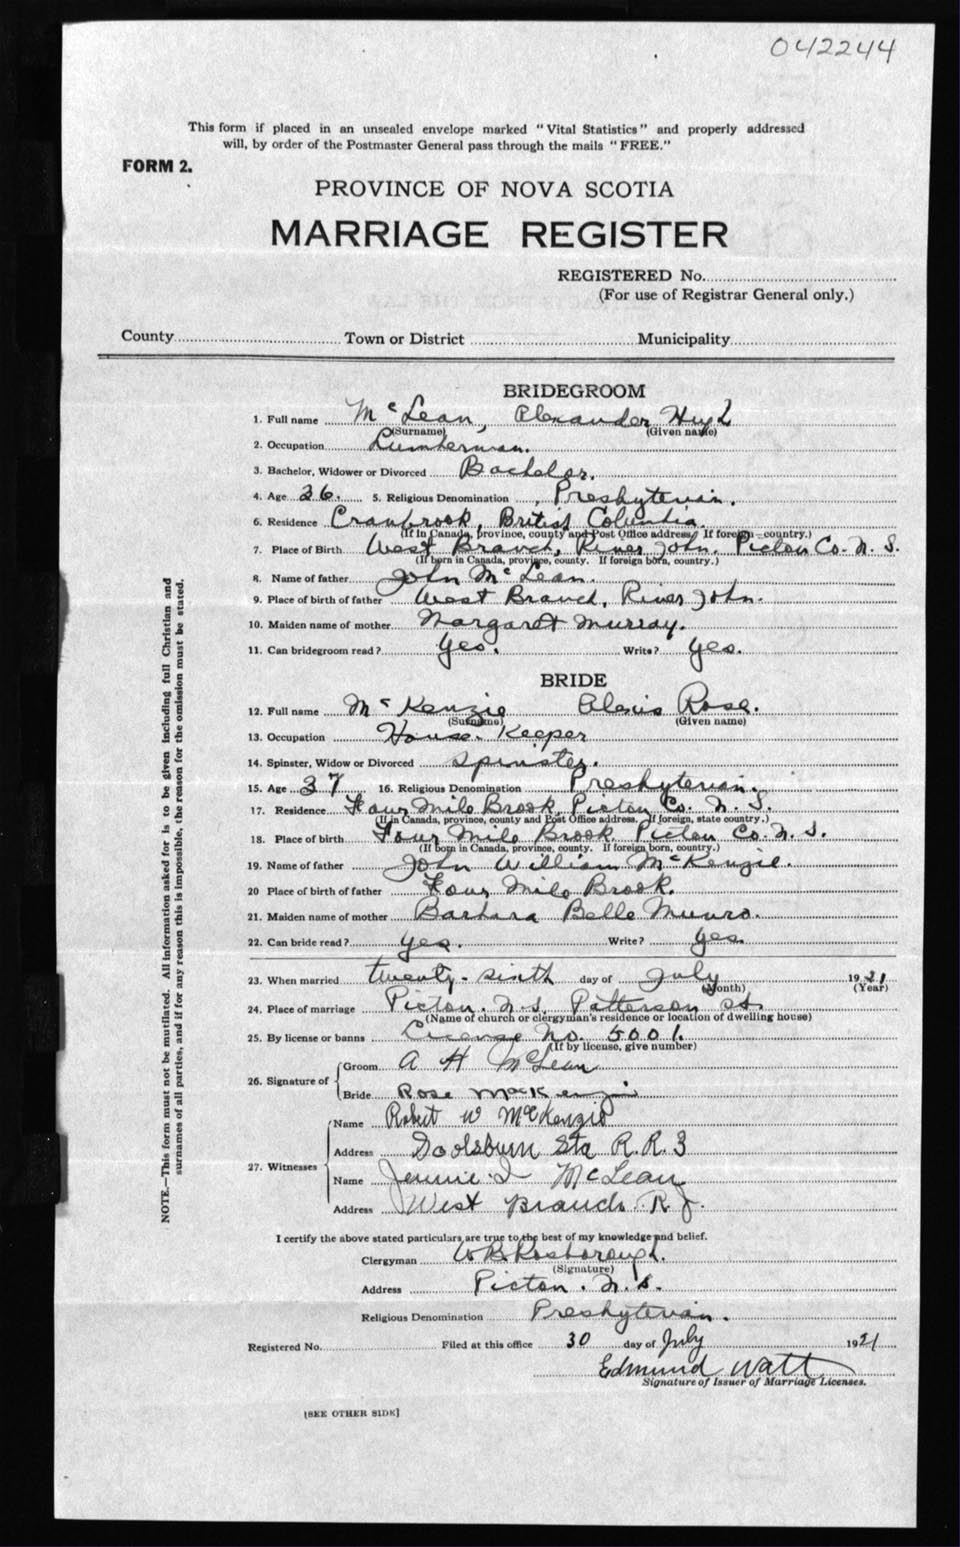 042244
This form if placed in an unsealed envelope marked "Vital Statistics" and properly addressed
will, by order of the Postmaster General pass through the mails "FREE."
FORM 2.
PROVINCE OF NOVA SCOTIA
MARRIAGE REGISTER
REGISTERED No.
(For use of Registrar General only.)
County Town or District Municipality
BRIDEGROOM
1. Full name McLean, Alexander Hugh
(Surname) (Given name)
2. Occupation Lumberman.
3. Bachelor, Widower or Divorced Bachelor.
4. Age 26. 5. Religious Denomination Presbyterian.
6. Residence Cranbrook, British Columbia.
(If in Canada, province, county and Post Office address. If foreign—country.)
7. Place of Birth West Branch, River John. Pictou Co. N. S.
(If born in Canada, province, county. If foreign born, country.)
8. Name of father John McLean.
9. Place of birth of father West Branch, River John.
10. Maiden name of mother Margaret Murray.
11. Can bridegroom read? Yes. Write? Yes.
BRIDE
12. Full name McKenzie Alexis Rose.
(Surname) (Given name)
13. Occupation House-Keeper
14. Spinster, Widow or Divorced Spinster.
15. Age 37 16. Religious Denomination Presbyterian.
17. Residence Four Mile Brook, Pictou Co. N. S.
(If in Canada, province, county and Post Office address. If foreign, state country.)
18. Place of birth Four Mile Brook, Pictou Co. N. S.
(If born in Canada, province, county. If foreign born, country.)
19. Name of father John William McKenzie.
20 Place of birth of father Four Mile Brook.
21. Maiden name of mother Barbara Belle Munro.
22. Can bride read? yes. Write? yes.
23. When married twenty-sixth day of July 1921
(Month) (Year)
24. Place of marriage Pictou. N. S. Patterson St.
(Name of church or clergyman's residence or location of dwelling house)
25. By license or banns License No. 5001.
(If by license, give number)
26. Signature of
Groom A H McLean
Bride Rose MacKenzie
27. Witnesses
Name Robert W McKenzie
Address Sta R.R.3
Name Jennie I McLean
Address West Branch R. J.
I certify the above stated particulars are true to the best of my knowledge and belief.
Clergyman W B Rosborough.
(Signature)
Address Pictou. N. S.
Religious Denomination Presbyterian.
Registered No. Filed at this office 30 day of July 1921
Edmund Watt
Signature of Issuer of Marriage Licenses.
[SEE OTHER SIDE]
NOTE.—This form must not be mutilated. All information asked for is to be given including full Christian and
surnames of all parties, and if for any reason this is impossible, the reason for the omission must be stated.